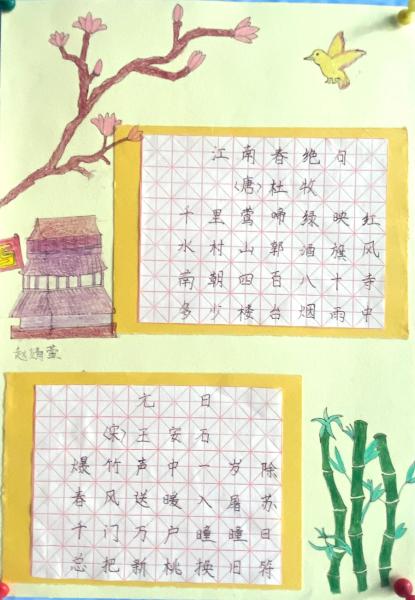 江南春绝句
〈唐〉杜牧
千里莺啼绿映红
水村山郭酒旗风
南朝四百八十寺
多少楼台烟雨中
赵婧萱
元日
〈宋〉王安石
爆竹声中一岁除
春风送暖入屠苏
千门万户瞳瞳日
总把新桃换旧符